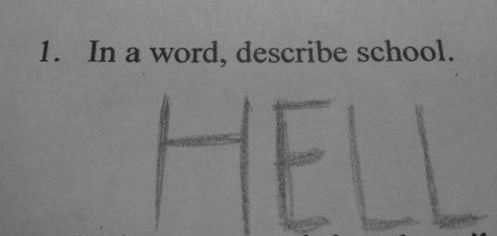 1. In a word, describe school.
HELL